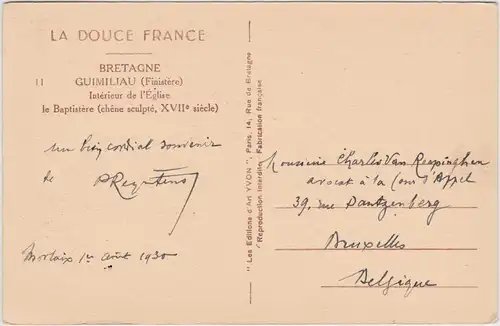 LA DOUCE FRANCE
BRETAGNE
11 GUIMILIAU (Finistère)
Intérieur de l'Église
le Baptistère (chêne sculpté, XVIIe siècle)
un bien cordial souvenir
de P Reyntens
Morlaix 1er Août 1930
" Les Editions d'Art YVON ", Paris, 14, Rue de Bretagne
Reproduction interdite. Fabrication française
Monsieur Charles Van Reepinghen
avocat à la Cour d'Appel
39, rue Pantzenberg
Bruxelles
Belgique